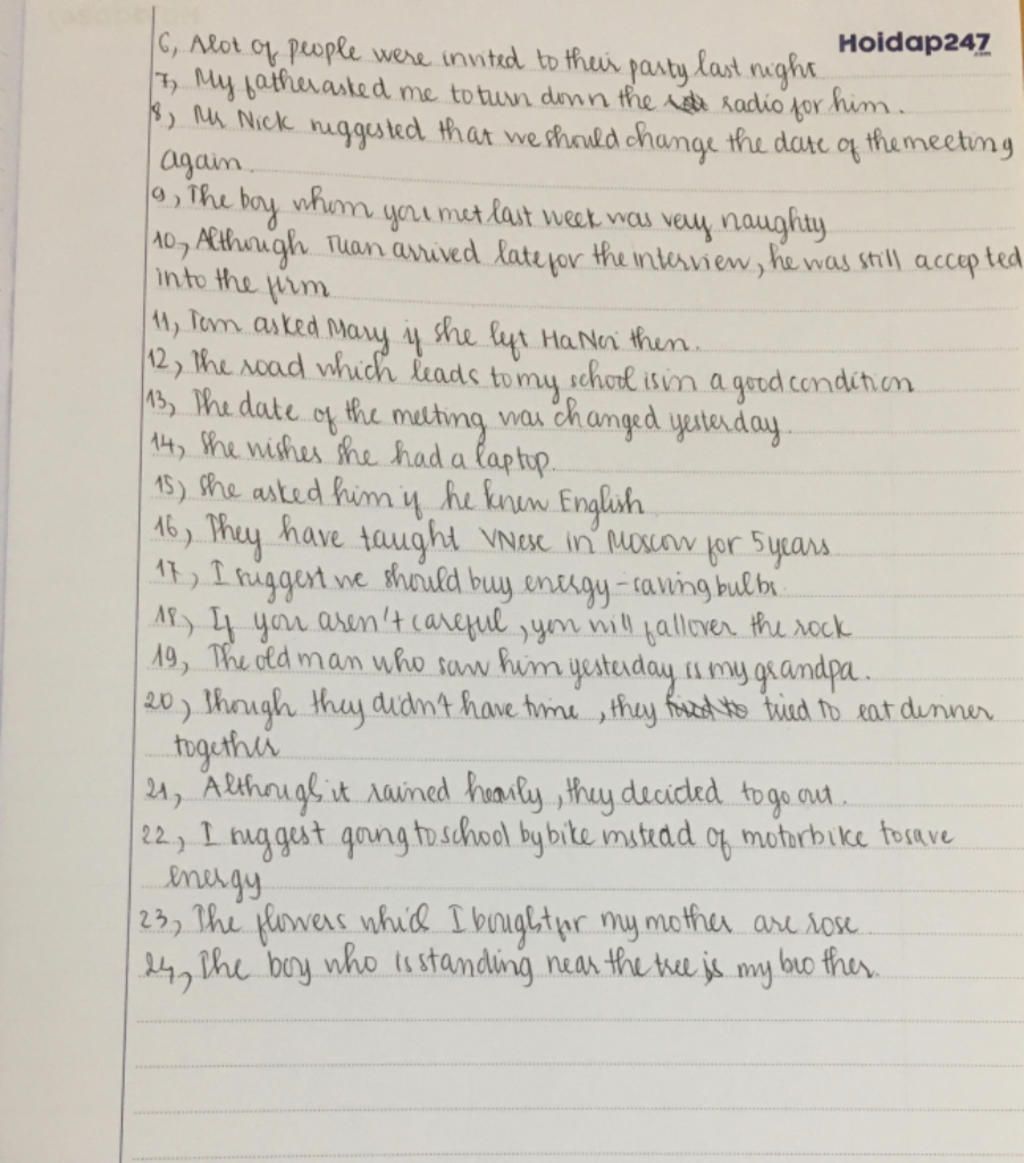 Hoidap247
.com
6, Alot of people were invited to their party last night
7, My father asked me to turn down the radio for him.
8, Mr Nick suggested that we should change the date of the meeting
again.
9, The boy whom you met last week was very naughty
10, Although Tuan arrived late for the interview, he was still accepted
into the firm
11, Tom asked Mary if she left Ha Noi then.
12, The road which leads to my school is in a good condition
13, The date of the meeting was changed yesterday.
14, She wishes she had a laptop.
15, She asked him if he knew English
16, They have taught VNese in Moscow for 5 years
17, I suggest we should buy energy-saving bulbs.
18, If you aren't careful, you will fall over the rock
19, The old man who saw him yesterday is my grandpa.
20, Though they didn't have time, they tried to eat dinner
together
21, Although it rained heavily, they decided to go out.
22, I suggest going to school by bike instead of motorbike to save
energy
23, The flowers which I bought for my mother are rose
24, The boy who is standing near the tree is my brother.